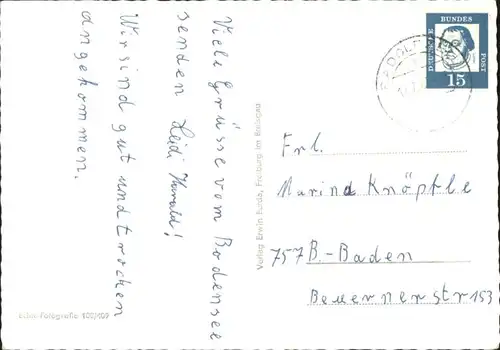 Viele Grüsse vom Bodensee
senden Heidi Harald!
Wir sind gut und trocken
angekommen.
Verlag Erwin Burda, Freiburg im Breisgau
DEUTSCHE BUNDES POST
15
Frl.
Knöpfle
757 B.-Baden
Beuernerstr 153